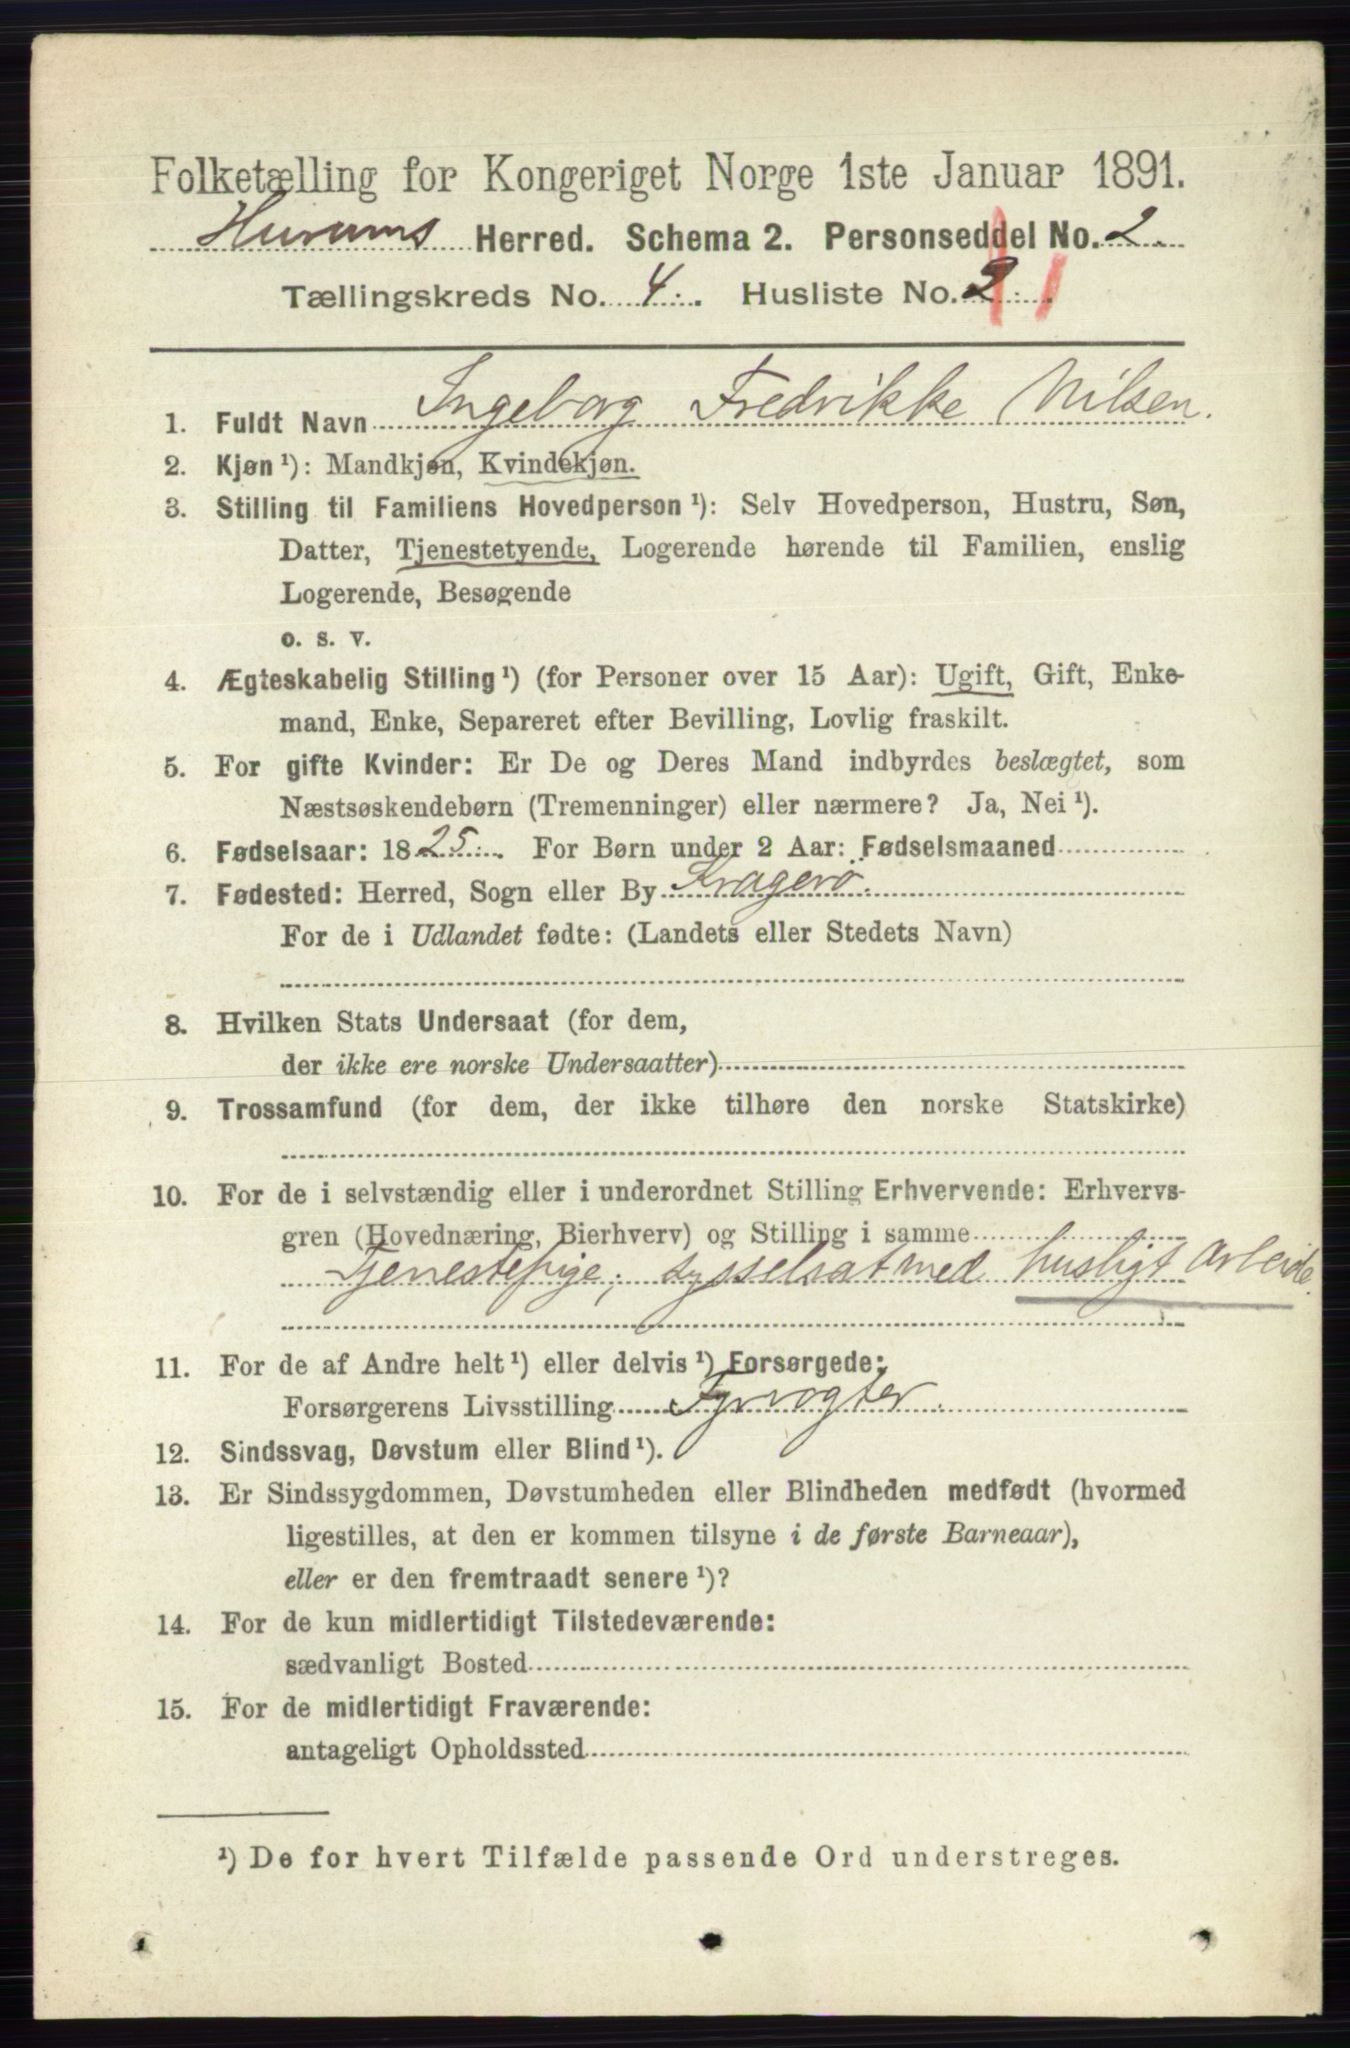 Folketælling for Kongeriget Norge 1ste Januar 1891.
Hurums Herred. Schema 2. Personseddel No. 2.
Tællingskreds No. 4. Husliste No. 2. 1
1. Fuldt Navn Ingeborg Fredrikke Nilsen.
2. Kjøn ¹): Mandkjøn, Kvindekjøn.
3. Stilling til Familiens Hovedperson ¹): Selv Hovedperson, Hustru, Søn,
Datter, Tjenestetyende, Logerende hørende til Familien, enslig
Logerende, Besøgende
o. s. v.
4. Ægteskabelig Stilling ¹) (for Personer over 15 Aar): Ugift, Gift, Enke-
mand, Enke, Separeret efter Bevilling, Lovlig fraskilt.
5. For gifte Kvinder: Er De og Deres Mand indbyrdes beslægtet, som
Næstsøskendebørn (Tremenninger) eller nærmere? Ja, Nei ¹).
6. Fødselsaar: 1825. For Børn under 2 Aar: Fødselsmaaned
7. Fødested: Herred, Sogn eller By Kragerö.
For de i Udlandet fødte: (Landets eller Stedets Navn)
8. Hvilken Stats Undersaat (for dem,
der ikke ere norske Undersaatter)
9. Trossamfund (for dem, der ikke tilhøre den norske Statskirke)
10. For de i selvstændig eller i underordnet Stilling Erhvervende: Erhvervs-
gren (Hovednæring, Bierhverv) og Stilling i samme
Tjenestepige; sysselsat med husligt Arbeide.
11. For de af Andre helt ¹) eller delvis ¹) Forsørgede:
Forsørgerens Livsstilling Fyrvogter.
12. Sindssvag, Døvstum eller Blind ¹).
13. Er Sindssygdommen, Døvstumheden eller Blindheden medfødt (hvormed
ligestilles, at den er kommen tilsyne i de første Barneaar),
eller er den fremtraadt senere ¹)?
14. For de kun midlertidigt Tilstedeværende:
sædvanligt Bosted
15. For de midlertidigt Fraværende:
antageligt Opholdssted
¹) De for hvert Tilfælde passende Ord understreges.